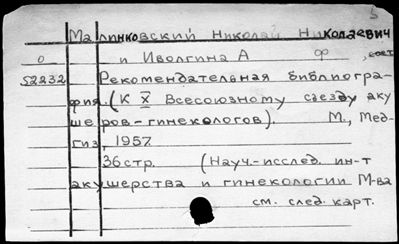 5
Малинковский Николай Николаевич
о и Иволгина А ф , сост
52232 Рекомендательная библиогра-
фия. (К X Всесоюзному съезду аку
шеров-гинекологов). М., Мед-
гиз, 1957.
36 стр. (Науч.-исслед. ин-т
акушерства и гинекологии М-ва
см. след. карт.